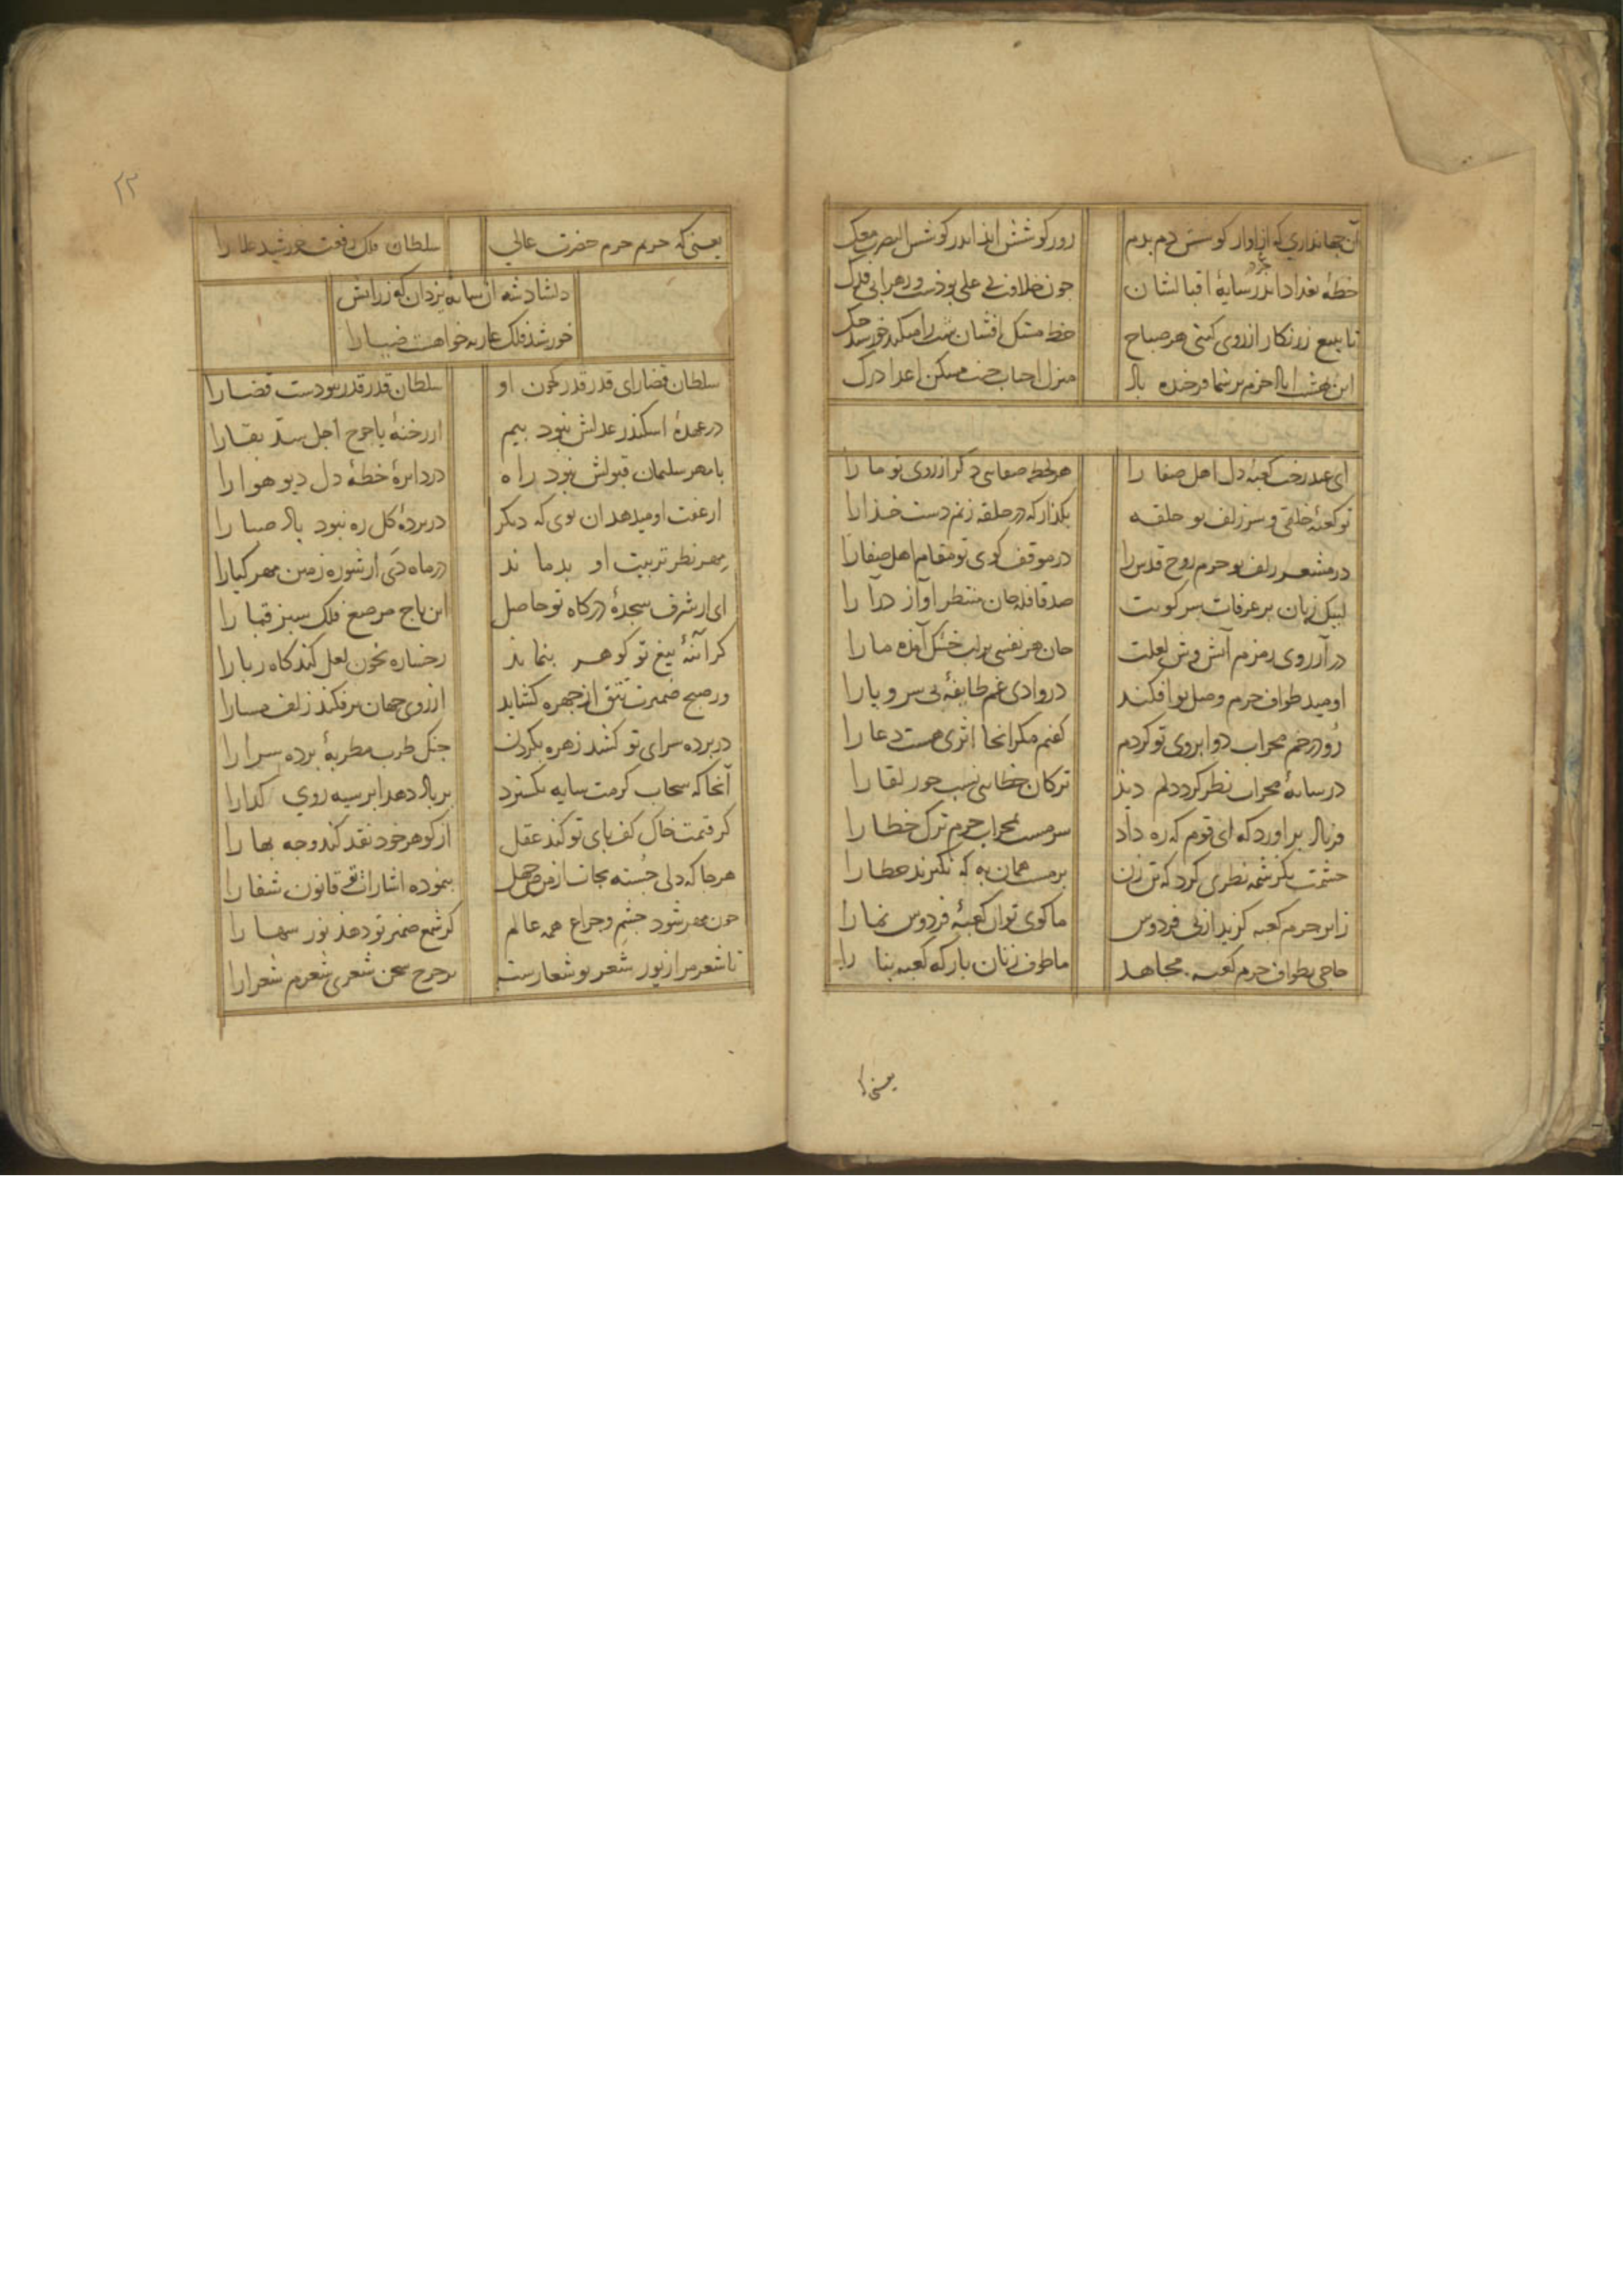 آن جهانداری که از اوار کوسش دم بدم
رور کوشش اندر کوشش النصر معک
خطهٔ بغداد اندر سایهٔ اقبالشان
چون خلافت بی علی بودست و زهرا بی فدک
تا بتیغ زرنگار از روی گیتی هر صباح
خط مشک افشان شب را میکند خورشید حک
این بهشت اباد خرم بر شما فرخنده باد
منزل احباب جنت مسکن اعدا درک
ای عید رخت کعبهٔ دل اهل صفا را
هر لحظه صفایی دگر از روی تو ما را
تو کعبهٔ خلقی و سر زلف تو حلقه
بگذار که در حلقه زنم دست خدا را
در مشعر زلف تو حرم روح قدس را
در موقف کوی تو مقام اهل صفا را
لبیک زنان بر عرفات سر کویت
صد قافله جان منتظر آواز درآ را
در آرزوی زمزم آتش وش لعلت
جان هر نفسی بر لب خشک آمده ما را
اومید طواف حرم وصل تو افکند
در وادی غم طایفهٔ بی سر و پا را
رو در خم محراب دو ابروی تو کردم
گفتم مگر آنجا اثری هست دعا را
در سایهٔ محراب نظر کرد دلم دید
ترکان خطایی نسب حور لقا را
فریاد براورد که ای قوم که ره داد
سرمست بمحراب حرم ترک خطا را
چشمت بکرشمه نظری کرد که تن زن
بر مست همان به که نگیرند خطا را
زایر حرم کعبه گزید از پی فردوس
ما کوی تو آن کعبهٔ فردوس نما را
حاجی بطواف حرم کعبه مجاهد
ما طوف زنان بارگه کعبه بنا را
یعنی که
۲۲
یعنی که حریم حرم حضرت عالی
سلطان فلک رفعت خورشید علا را
دلشاد شه آن سایهٔ یزدان که ز رایش
خورشید فلک عاریه خواهست ضیا را
سلطان قضا رای قدر قدر که چون او
سلطان قدر قدر نبودست قضا را
در عهدهٔ اسکندر عدلش نبود بیم
از رخنهٔ یاجوج اجل سد بقا را
با مهر سلیمان قبولش نبود راه
در دایرهٔ خطهٔ دل دیو هوا را
از عفت او میدهد آن بوی که دیگر
در پردهٔ گل ره نبود باد صبا را
مهر نظر تربیت او بدماند
در ماه دی از شوره زمین مهر گیا را
ای از شرف سجدهٔ درگاه تو حاصل
این تاج مرصع فلک سبز قبا را
گر آئنهٔ تیغ تو گوهر بنماید
رخساره بخون لعل کند کاه ربا را
ور صبح ضمیرت تتق از چهره گشاید
از روی جهان برفکند زلف مسا را
در پرده سرای تو کشد زهره بگردن
چنگ طرب مطربهٔ پرده سرا را
آنجا که سحاب کرمت سایه بگسترد
بر باد دهد ابر سیه روی گدا را
گر قیمت خاک کف پای تو کند عقل
از گوهر خود نقد کند وجه بها را
هرجا که دلی خسته بجانست از مرض جهل
بنموده اشارات تو قانون شفا را
چون مهر شود چشم و چراغ همه عالم
گر شمع ضمیر تو دهد نور سها را
تا شعر مرا از نور شعر تو شعارست
بر چرخ سخن شعری شعرم شعرا را